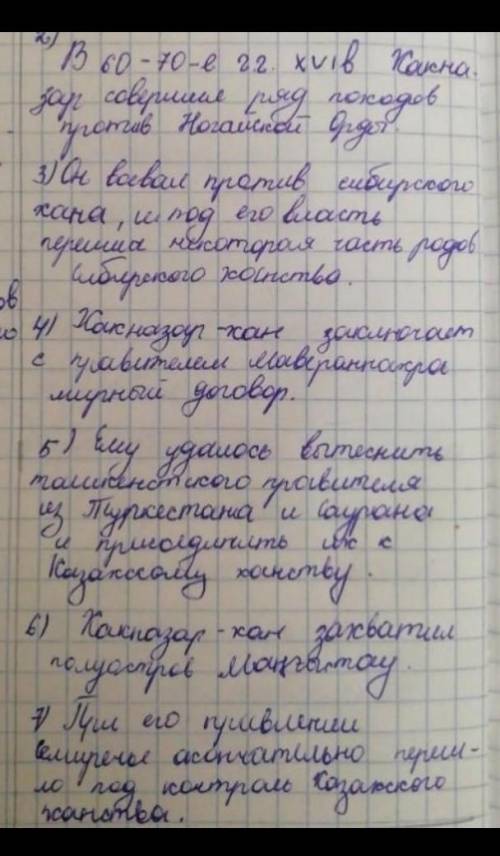 2)
В 60-70-е г.г. XVI в Хакна-
зар совершил ряд походов
против Ногайской Орды.
3) Он воевал против сибирского
хана, и под его власть
перешла некоторая часть родов
Сибирского ханства.
ов
4) Хакназар-хан заключает
с правителем Мавераннахра
мирный договор.
5) Ему удалось вытеснить
ташкентского правителя
из Туркестана и Саурана
и присоединить их к
Казахскому ханству.
6) Хакназар-хан захватил
полуостров Маңғытау.
7) При его правлении
Семиречье окончательно переш-
ло под контроль Казахского
ханства.